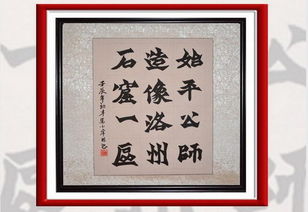 始平公師
造像洛州
石窟一區
壬辰年初冬